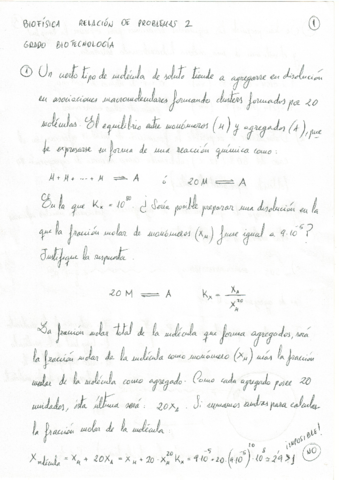 BIOFÍSICA RELACIÓN DE PROBLEMAS 2 1
GRADO BIOTECNOLOGÍA
1 Un cierto tipo de molécula de soluto tiende a agregarse en disolución
en asociaciones macromoleculares formando clusters formados por 20
moléculas. El equilibrio entre monómeros (M) y agregados (A), pue
de expresarse en forma de una reacción química como:
M + M + ... + M ⇌ A ó 20 M ⇌ A
En la que Kₐ = 10 ¿Sería posible preparar una disolución en la
que la fracción molar de monómeros (x_M) fuese igual a 9·10⁻⁵?
Justifique la respuesta.
20 M ⇌ A Kₐ = x_A / x_M²⁰
La fracción molar total de la molécula que forma agregados, será
la fracción molar de la molécula como monómero (x_M) más la fracción
molar de la molécula como agregado. Como cada agregado posee 20
unidades, ésta última será 20x_A. Si sumamos ambas para calcular
la fracción molar de la molécula
¡IMPOSIBLE!
x_molécula = x_M + 20x_A = x_M + 20·x_M²⁰ Kₐ = 9·10⁻⁵ + 20·(9·10⁻⁵)
NO